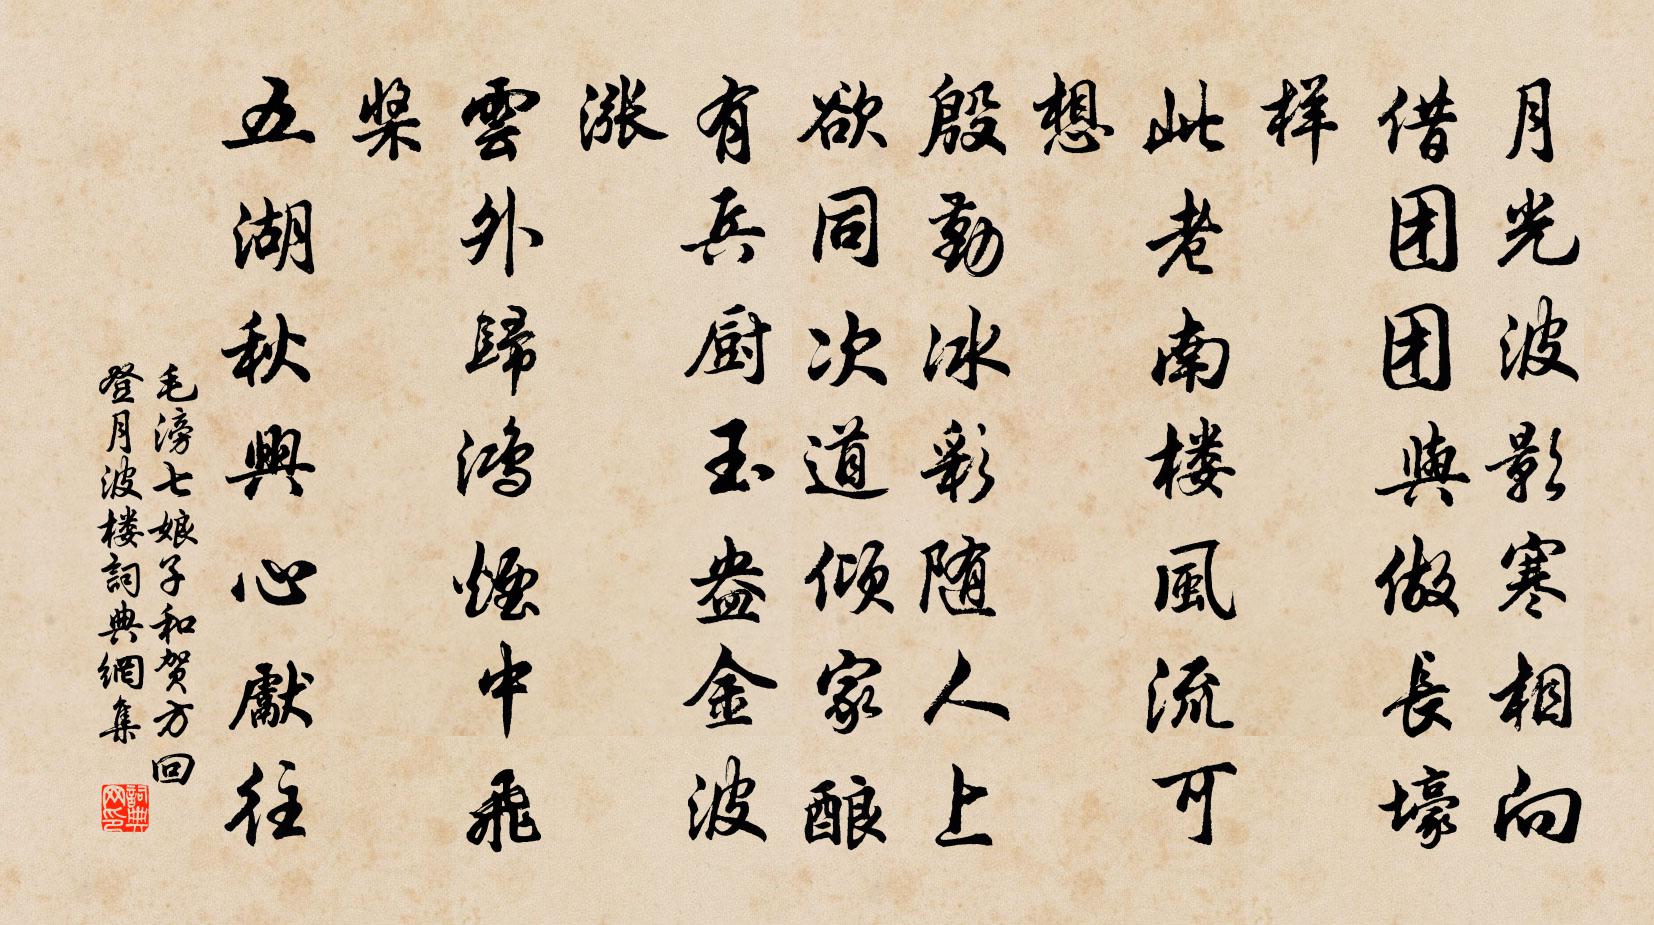 月光波影寒相向
借团团與倣長壕
样
此老南楼風流可
想
殷勤冰彩随人上
欲同次道倾家酿
有兵厨玉盎金波
涨
雲外歸鸿煙中飛
桨
五湖秋興心獻往
毛滂七娘子和贺方回
登月波楼詞典網集
詞典
网印